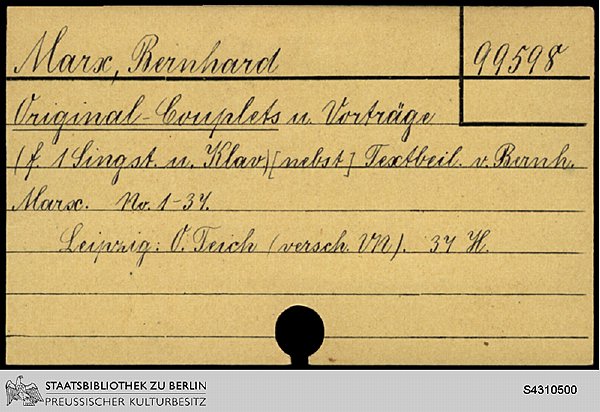 Marx, Bernhard
99598
Original-Couplets u. Vorträge
(f. 1 Singst. u. Klav) [nebst] Textbeil. v. Bernh.
Marx. No. 1-37.
Leipzig: O. Teich (versch. VN). 37 H.
STAATSBIBLIOTHEK ZU BERLIN
PREUSSISCHER KULTURBESITZ
S4310500